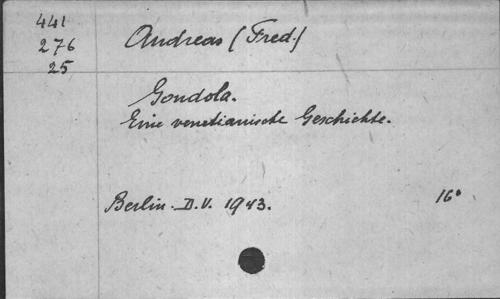 441
276
25
Andreas (Fred.)
Gondola.
Eine venetianische Geschichte.
Berlin. D.V. 1943.
16°